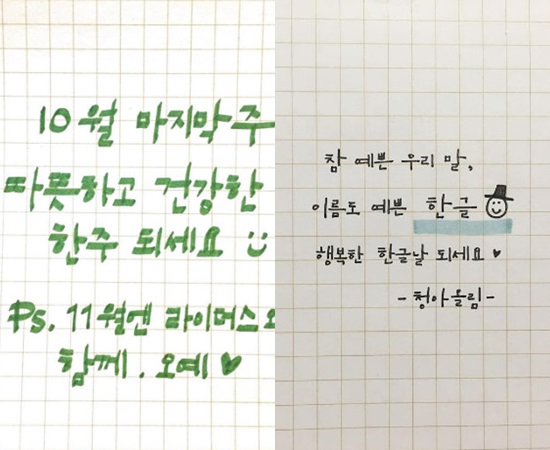 10월 마지막주
따뜻하고 건강한
한주 되세요
Ps. 11월엔 라이머스
함께. 오예 ♥
참 예쁜 우리 말,
이름도 예쁜 한글
행복한 한글날 되세요 ♥
-청아올림-